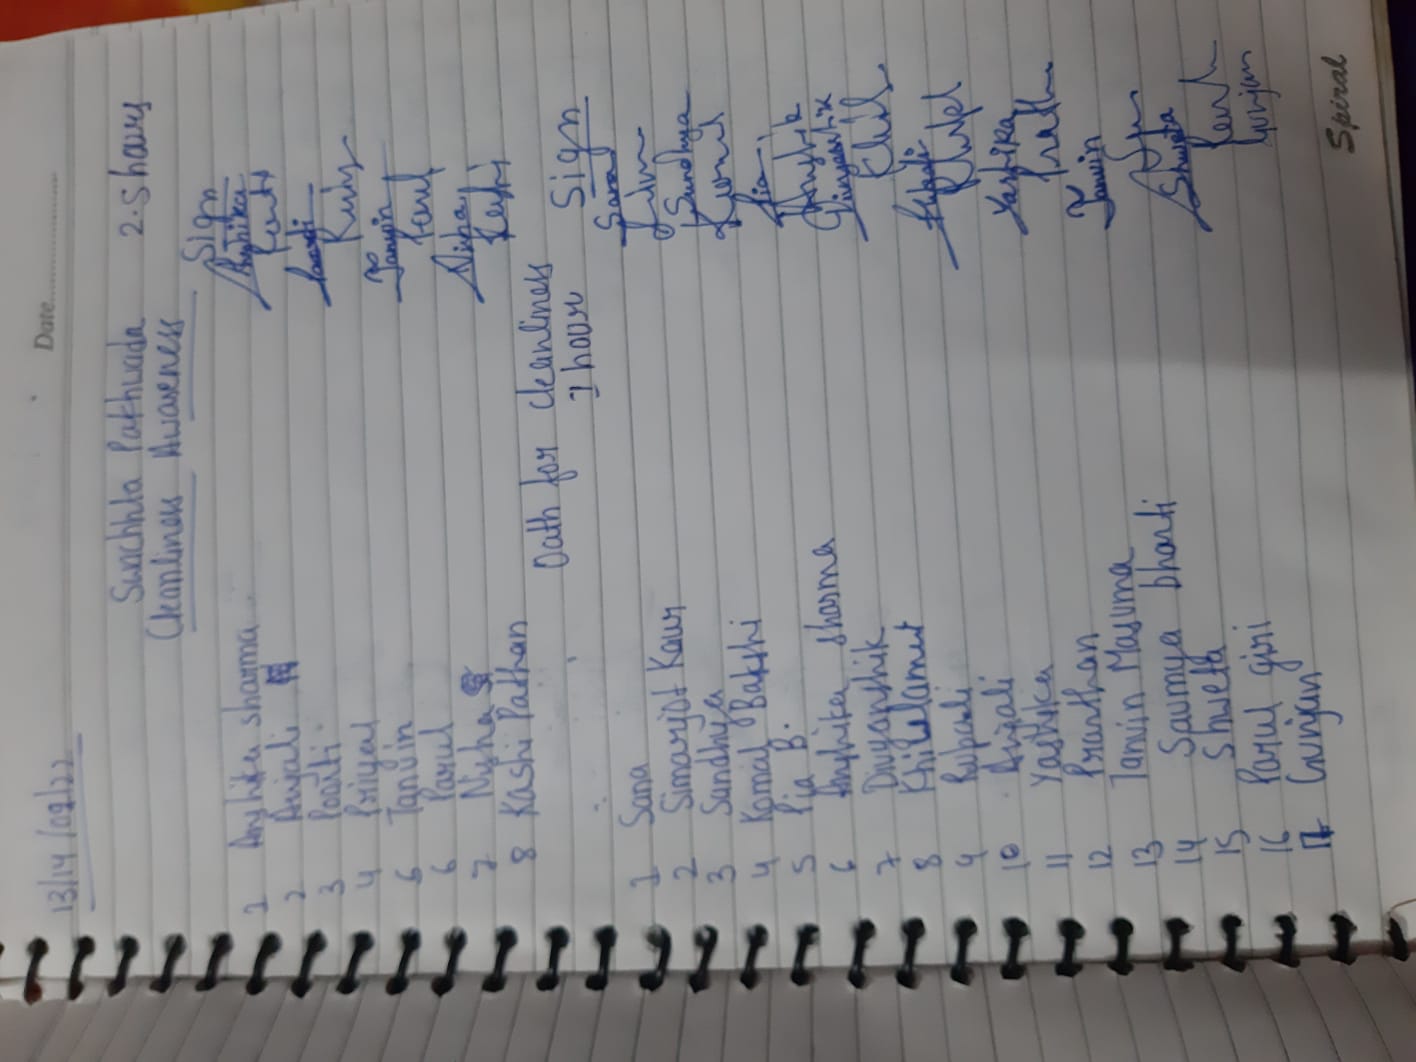 Date
13/14/09/22
Swachhta Pakhwada 2.5 hours
Cleanliness Awareness
Sign
1 Anshika sharma Anshika
2 Anjali
3 Paarti
4 Priyal
5 Tanvin Tanvin
6 Parul Parul
7 Nysha
8 Kashi Pathan Kashi
Oath for cleanliness
1 hour Sign
1 Sana Sana
2 Simarjot Kaur Simu
3 Sandhya Sandhya
4 Komal Bakshi Komal
5 Pia B. Pia
6 Anshika sharma Anshik
7 Divyanshik Divyanshik
8
9 Rupali
10 Anjali
11 Yashika Yashika
12 Pranthan
13 Tanvin Masuma Tanvin
14 Saumya bharti
15 Shweta Shweta
16 Parul giri Parul
17 Gunjan Gunjan
Spiral